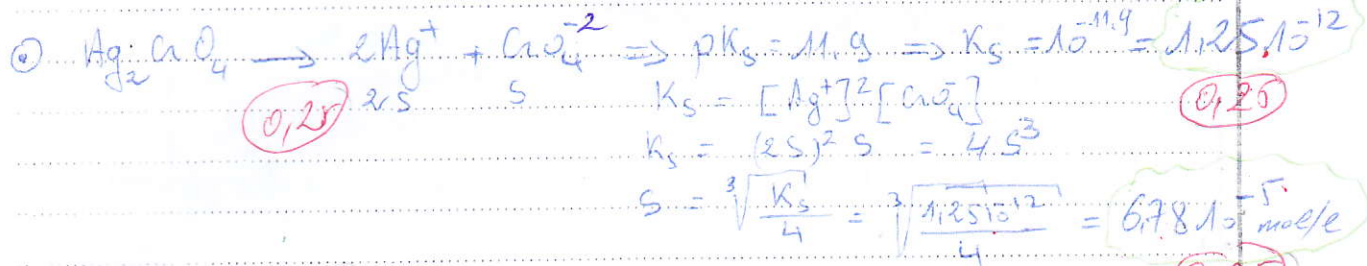 ⊙ Ag₂CrO₄ → 2Ag⁺ + CrO₄⁻² ⇒ pKs = 11.9 ⇒ Ks = 10⁻¹¹·⁹ = 1,25.10⁻¹²
0,25 2s s Ks = [Ag⁺]²[CrO₄⁻] 0,25
Ks = (2S)² S = 4S³
S = ∛(Ks/4) = ∛(1,25 10⁻¹²/4) = 6,78 10⁻⁵ mol/l